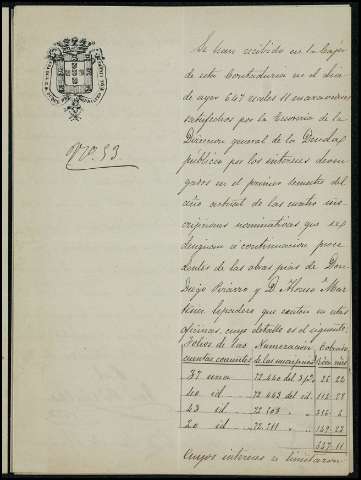 Nº. 53.
Se han recibido en la Caja
de esta Contaduría en el dia
de ayer 647 reales 11 maravedises
satisfechos por la Tesorería de la
Direccion general de la Deuda
pública por los intereses deven-
gados en el primer semestre del
año actual de las cuatro ins-
cripciones nominativas que se
designan á continuacion proce-
dentes de las obras pias de Don
Diego Pizarro y D. Alonso Mar-
tinez que constan en estas
oficinas, cuyo detalle es el siguiente.
Folios de las Numeracion Cobrado
cuentas corrientes de las inscripciones Rs. ms.
37 una 72.440 del 3 p%
40 id 72.443 del id. 112 28
43 id 72.703 " "
20 id 72.711 " "
647 11
Cuyos intereses se